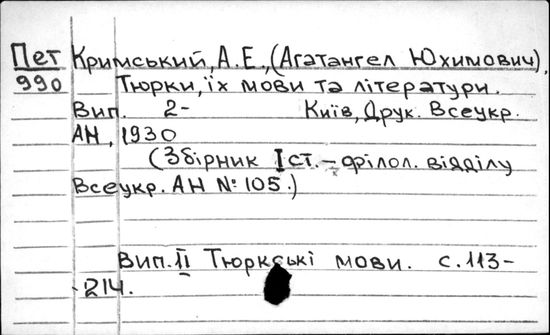 Пет Кримський, А.Е., (Агатангел Юхимович).
990 Тюрки, їх мови та літератури.
Вип. 2- Київ, Друк. Всеукр.
АН, 1930
(Збірник Іст.-філол. відділу
Всеукр. АН № 105.)
Вип. II Тюркські мови. с. 113-
-214.